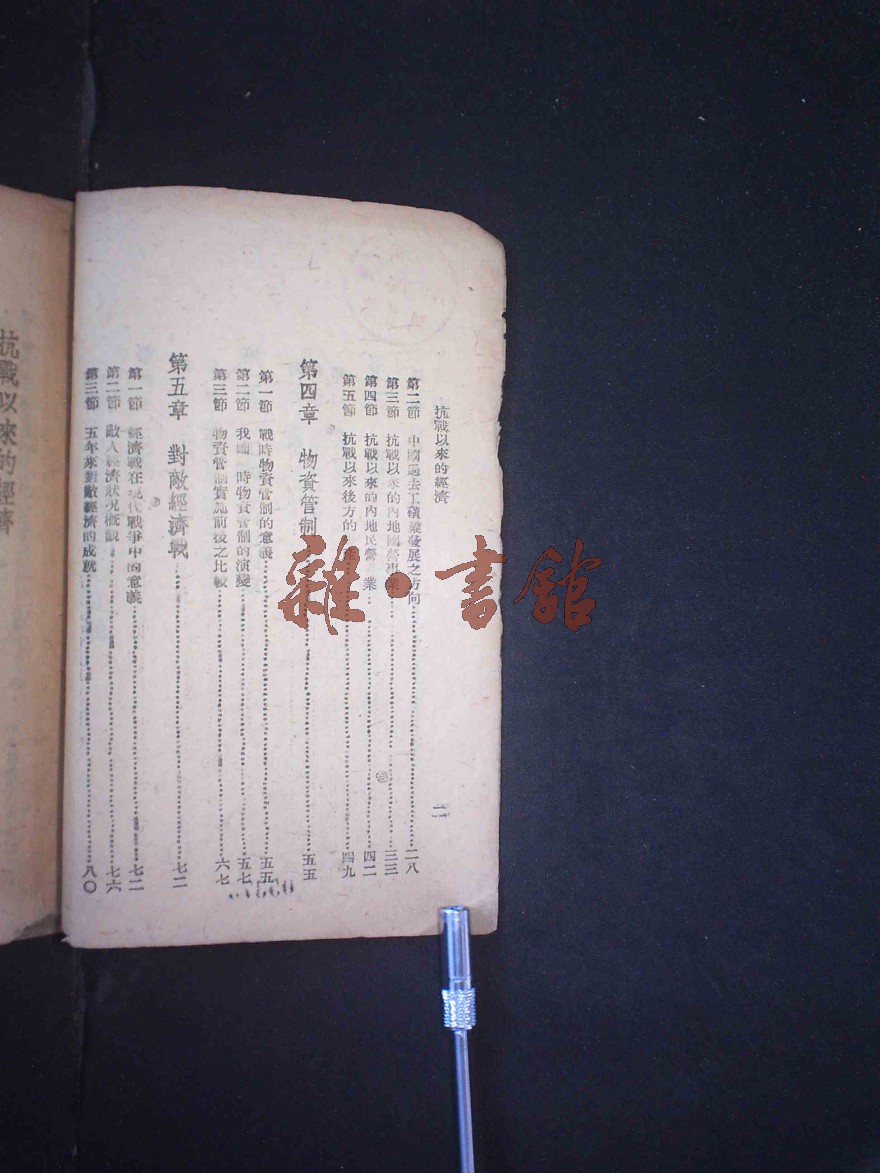 抗戰以來的經濟
二
第二節 中國過去工礦業發展之方向 二八
第三節 抗戰以來的內地國營事業 三三
第四節 抗戰以來的內地民營 業 四二
第五節 抗戰以來後方的 四九
第四章 物資管制 五五
第一節 戰時物資管制的意義 五五
第二節 我國 時物資管制的演變 五七
第三節 物資管制實施前後之比較 六七
第五章 對敵經濟戰 七二
第一節 經濟戰在現代戰爭中的意義 七二
第二節 敵人經濟狀況概觀 七六
第三節 五年來對敵經濟的成就 八〇
抗戰以來的經濟
雜·書館